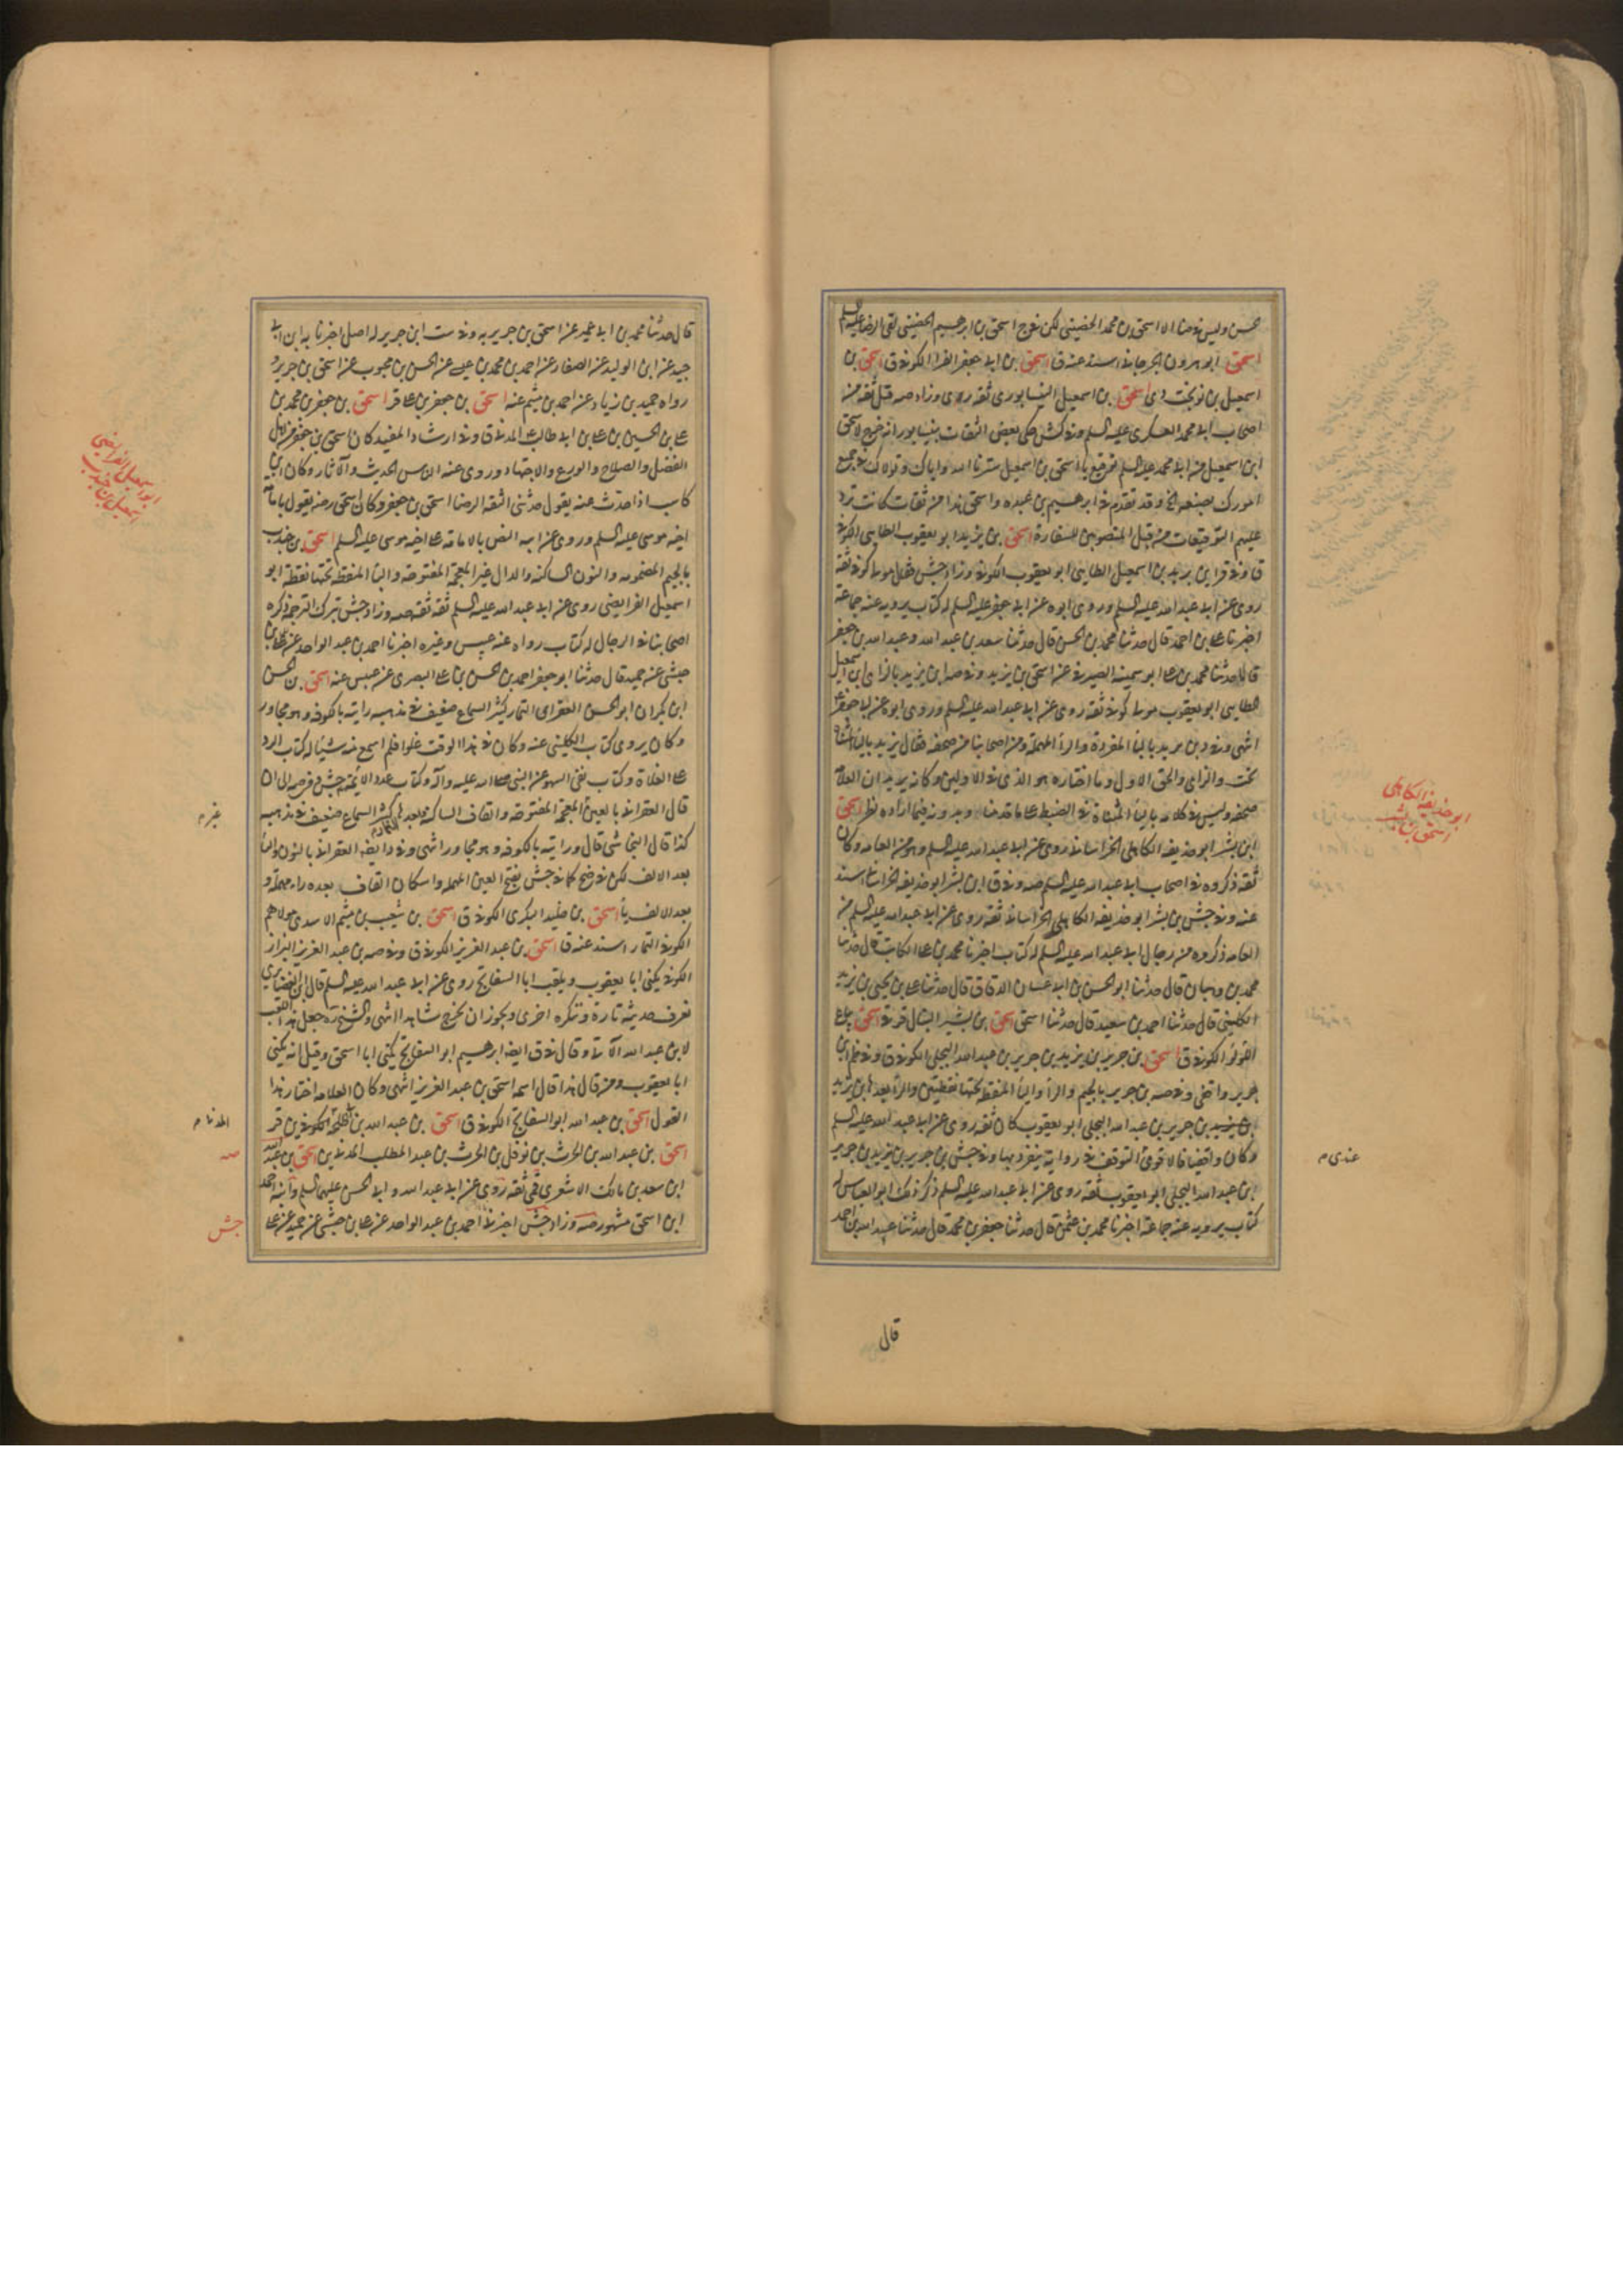 محسن وليس في منا الا اسحق بن محمد الحضيني لكن نعرف اسحق بن ابرهيم الحضيني لقي الرضا عليه السلم
اسحق ابو هرون الجرجاني اسند عنه ق اسحق بن ابي جعفر الفرا الكوفي ق اسحق بن
اسمعيل بن نوبخت دي اسحق بن اسمعيل النيسابوري ثقة ري وزاد صه قبل ثقة من
اصحاب ابي محمد العسكري عليه السلم وفي كش حكى بعض الثقات بنيسابور انه خرج لاسحق
ابن اسمعيل من ابي محمد عليه السلم توقيع يا اسحق بن اسمعيل سترنا الله واياك وتولاك في جميع
امورك بصنعه الخ وقد تقدم في ابرهيم بن عبده واسحق هذا من ثقات كانت ترد
عليهم التوقيعات من قبل المنصوبين للسفارة اسحق بن يزيد ابو يعقوب الطايي الكوفي
ق وفي قر ابن بريد بن اسمعيل الطايي ابو يعقوب الكوفي وزاد جش مولى كوفي ثقة
روى عن ابي عبد الله عليه السلم وروى ابوه عن ابي جعفر عليه السلم له كتاب يرويه عنه جماعة
اخبرنا علي بن احمد قال حدثنا محمد بن الحسن قال حدثنا سعد بن عبد الله وعبد الله بن جعفر
قالا حدثنا محمد بن علي ابو سمينة الصيرفي عن اسحق بن يزيد وفي صه ابن يزيد بالزاي ابن اسمعيل
الطايي ابو يعقوب مولى كوفي ثقة روى عن ابي عبد الله عليه السلم وروى ابوه عن ابي جعفر
انتهى وفي د بن بريد بالباء المفردة والراء المهملة ومن اصحابنا من صحفه فقال يزيد بالياء المثناة
تحت والزاي والحق الاول وما اختاره هو الذي في الاولين وكانه يريد ان العلامة
صحفه وليس في كلامه بالياء المثناة في الضبط على ما قدمنا وجد وفيما اراده نظر اسحق
ابن بشر ابو حذيفه الكاهلي الخراساني روى عن ابي عبد الله عليه السلم وهو من العامة وكان
ثقة ذكروه في اصحاب ابي عبد الله عليه السلم صه وفي ق ابن بشر ابو حذيفه الخراساني اسند
عنه وفي جش بن بشر ابو حذيفه الكاهلي الخراساني ثقة روى عن ابي عبد الله عليه السلم من
العامة ذكروه من رجال ابي عبد الله عليه السلم له كتاب اخبرنا محمد بن علي الكاتب قال حدثنا
محمد بن وهبان قال حدثنا ابو الحسن بن ابي غسان الدقاق قال حدثنا علي بن يحيى بن يزيد
الكليني قال حدثنا احمد بن سعيد قال حدثنا اسحق اسحق بن بشير النبال قر في اسحق بياع
اللؤلؤ الكوفي ق اسحق بن جرير بن يزيد بن جرير بن عبد الله البجلي الكوفي ق وفي ظم ابن
جرير واقفي وفي صه بن جرير بالجيم والراء والياء المنقطة تحتها نقطتين والراء بعدها بن يزيد
بن يزيد بن جرير بن عبد الله البجلي ابو يعقوب كان ثقة روى عن ابي عبد الله عليه السلم
وكان واقفيا فالاقوى التوقف في رواية ينفرد بها وفي جش بن جرير بن يزيد بن جرير
بن عبد الله البجلي ابو يعقوب ثقة روى عن ابي عبد الله عليه السلم ذكر ذلك ابو العباس له
كتاب يرويه عنه جماعة اخبرنا محمد بن عثمن قال حدثنا جعفر بن محمد قال حدثنا عبيد الله بن احمد
قال
ابو حذيفه الكاهلي
اسحق بن بشر
عندي م
قال حدثنا محمد بن ابي عمير عن اسحق بن جرير به وفي ست ابن جرير له اصل اخبرنا به ابن ابي
جيد عن ابن الوليد عن الصفار عن احمد بن محمد بن عيسى عن الحسن بن محبوب عن اسحق بن جرير و
رواه حميد بن زياد عن احمد بن ميثم عنه اسحق بن جعفر بن علي قر اسحق بن جعفر بن محمد بن
علي بن الحسين بن علي بن ابي طالب المدني ق وفي ارشاد المفيد كان اسحق بن جعفر من اهل
الفضل والصلاح والورع والاجتهاد وروى عنه الناس الحديث والآثار وكان ابن
كاسب اذا حدث عنه يقول حدثني الثقة الرضا اسحق بن جعفر وكان اسحق رضه يقول بامامة
اخيه موسى عليه السلم وروى عن ابيه النص بالامامة على اخيه موسى عليه السلم اسحق بن جندب
بالجيم المضمومه والنون الساكنه والدال غير المعجمة المفتوحة والباء المنقطة تحتها نقطة ابو
اسمعيل الفرايضي روى عن ابي عبد الله عليه السلم ثقة ثقة صه وزاد جش بترك الترجمة ذكره
اصحابنا في الرجال له كتاب رواه عنه عبيس وغيره اخبرنا احمد بن عبد الواحد عن علي بن
حبشي عن حميد قال حدثنا ابو جعفر احمد بن الحسن بن علي البصري عن عبيس عنه اسحق بن الحسن
ابن بكران ابو الحسن العقراى التمار كثير السماع ضعيف في مذهبه رايته بالكوفه وهو مجاور
وكان يروي كتاب الكليني عنه وكان في هذا الوقت علوا فلم اسمع منه شيئا له كتاب الرد
على الغلاة وكتاب نفي السهو عن النبي صلى الله عليه وآله وكتاب عدد الائمه جش
قال العقراني بالعين المعجمة المفتوحه والقاف الساكنه بعدها كثير السماع ضعيف في مذهبه
كذا قال النجاشي قال ورايته بالكوفه وهو مجاور انتهى وفي د ايضا العقراني بالنون والياء
بعد الالف لكن في ضح كما في جش بفتح العين المهمله واسكان القاف بعده راء مهملة و
بعد الالف يا اسحق بن خليد البكري الكوفي ق اسحق بن شعيب بن ميثم الاسدي مولاهم
الكوفي التمار اسند عنه ق اسحق بن عبد العزيز الكوفي ق وفي صه بن عبد العزيز البزاز
الكوفي يكنى ابا يعقوب ويلقب ابا السفاتج روى عن ابي عبد الله عليه السلم قال ابن الغضايري
نعرف حديثه تارة وننكره اخرى ويجوز ان يخرج شاهدا انتهى والشيخ ره جعل هذا اللقب
لابن عبد الله الآتي وقال في ق ايضا ابرهيم ابو السفاتج يكنى ابا اسحق وقيل انه يكنى
ابا يعقوب ومن قال هذا قال اسمه اسحق بن عبد العزيز انتهى وكان العلامة اختار هذا
القول اسحق بن عبد الله ابو السفاتج الكوفي ق اسحق بن عبد الله بن ابي طلحة الكوفي ين قر
اسحق بن عبد الله بن الحرث بن نوفل بن الحرث بن عبد المطلب المدني ين اسحق بن عبد الله
ابن سعد بن مالك الاشعري قمي ثقة روى عن ابي عبد الله وابي الحسن عليهما السلم وابنه احمد
ابن اسحق مشهور صه وزاد جش اخبرنا احمد بن عبد الواحد عن علي بن حبشي عن حميد عن علي
ابو اسمعيل الفرايضي
المدني م
صه
جش